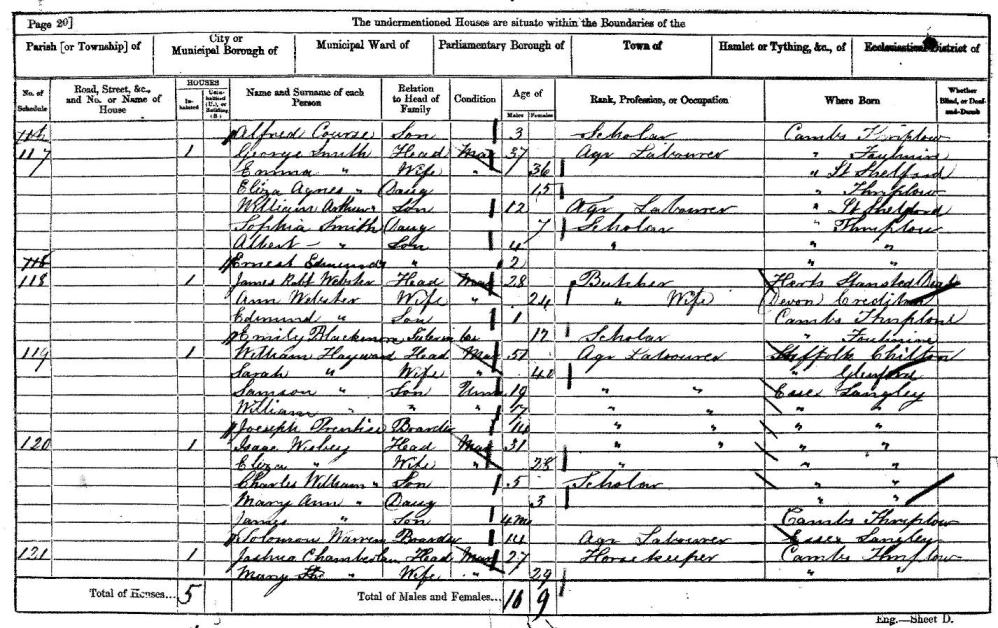 Page 20]
The undermentioned Houses are situate within the Boundaries of the
Parish [or Township] of
City or Municipal Borough of
Municipal Ward of
Parliamentary Borough of
Town of
Hamlet or Tything, &c., of
Ecclesiastical District of
No. of Schedule
Road, Street, &c., and No. or Name of House
HOUSES
Inhabited
Uninhabited (U.), or Building (B.)
Name and Surname of each Person
Relation to Head of Family
Condition
Age of
Males
Females
Rank, Profession, or Occupation
Where Born
Whether Blind, or Deaf-and-Dumb
Alfred Course Son 3 Scholar Cambs Thriplow
117 1 George Smith Head Mar 37 Agr Labourer " Foulmire
Emma " Wife " 36 " Shelford
Eliza Agnes " Daug 15 " Thriplow
William Arthur " Son 12 Agr Labourer " Shelford
Sophia Smith Daug 7 Scholar " Thriplow
Albert " Son 4 " " "
Ernest Edmund " 2 " "
118 1 James Robt Webster Head Mar 28 Butcher Herts Stansted
Ann Webster Wife " 24 " Wife Devon Crediton
Edmund " Son 1 Cambs Thriplow
Emily Blackman 17 Scholar " Foulmire
119 1 William Hayward Head Mar 51 Agr Labourer Suffolk Chilton
Sarah " Wife " 40 "
Samson " Son Unm 19 " " Essex Langley
William " " " 17 " " " "
Joseph Prentice Boarder 14 " " " "
120 1 Isaac Wisbey Head Mar 31 " " " "
Eliza " Wife " 28 " " "
Charles William " Son 5 Scholar " "
Mary Ann " Daug 3 " "
James " Son 4 m Cambs Thriplow
Solomon Warren Boarder 14 Agr Labourer Essex Langley
121 1 Joshua Chamberlain Head Mar 27 Horsekeeper Cambs Thriplow
Mary " Wife " 29 " "
Total of Houses... 5
Total of Males and Females... 16 9
Eng.—Sheet D.